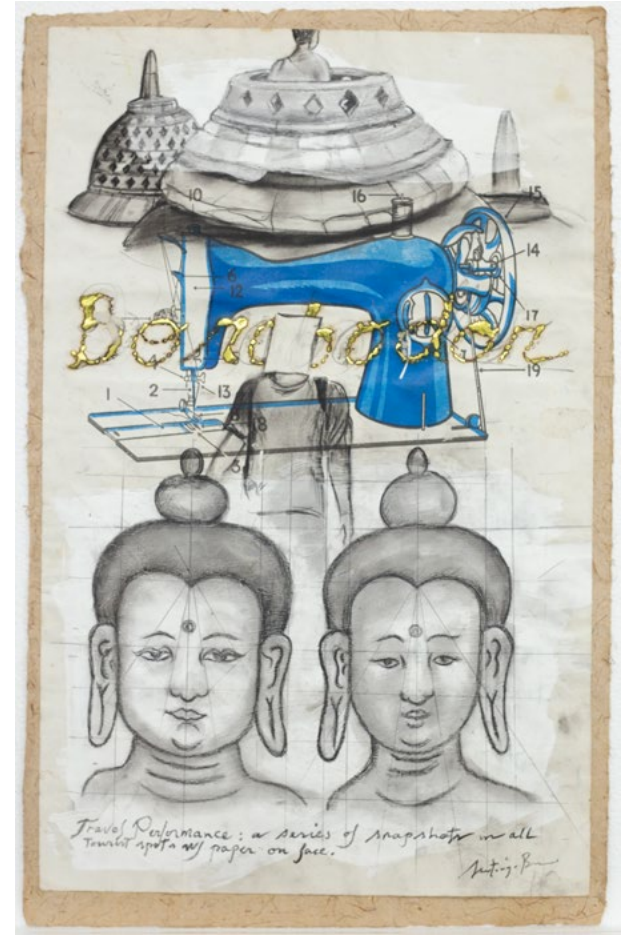 10
16
15
14
6
12
17
Borobodor
19
1
2
13
8
Travel Performance : a series of snapshots in all
tourist spots w/ paper on face.